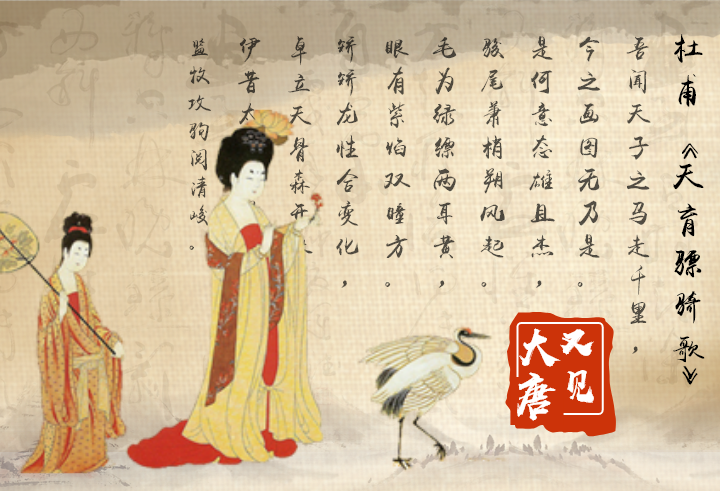 杜甫《天育骠骑歌》
吾闻天子之马走千里，
今之画图无乃是。
是何意态雄且杰，
骏尾萧梢朔风起。
毛为绿缥两耳黄，
眼有紫焰双瞳方。
矫矫龙性合变化，
卓立天骨森开
伊昔太
监牧攻驹阅清峻。
又见
大唐